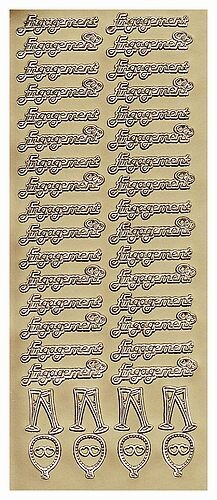 Engagement Engagement
Engagement Engagement
Engagement Engagement
Engagement Engagement
Engagement Engagement
Engagement Engagement
Engagement Engagement
Engagement Engagement
Engagement Engagement
Engagement Engagement
Engagement Engagement
Engagement Engagement
Engagement Engagement
Engagement Engagement
Engagement Engagement
Engagement Engagement